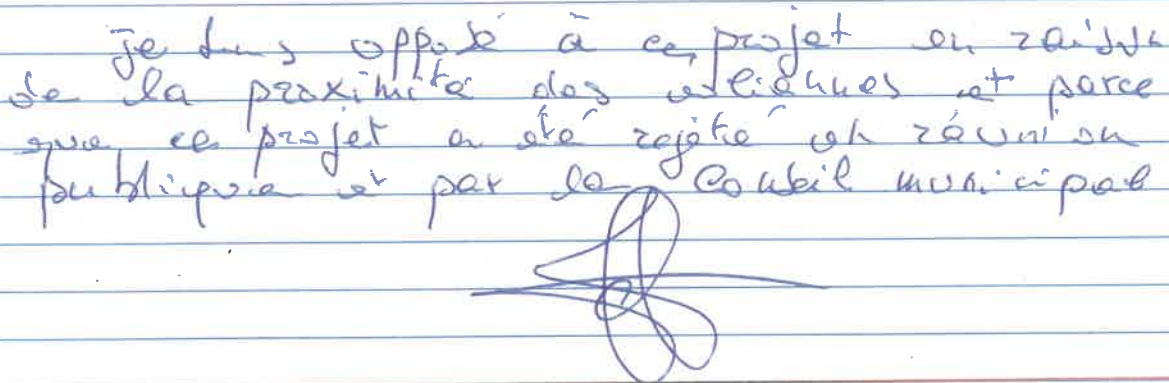 Je suis opposé à ce projet en raison
de la proximité des éoliennes et parce
que ce projet a été rejeté en réunion
publique et par le Conseil municipal